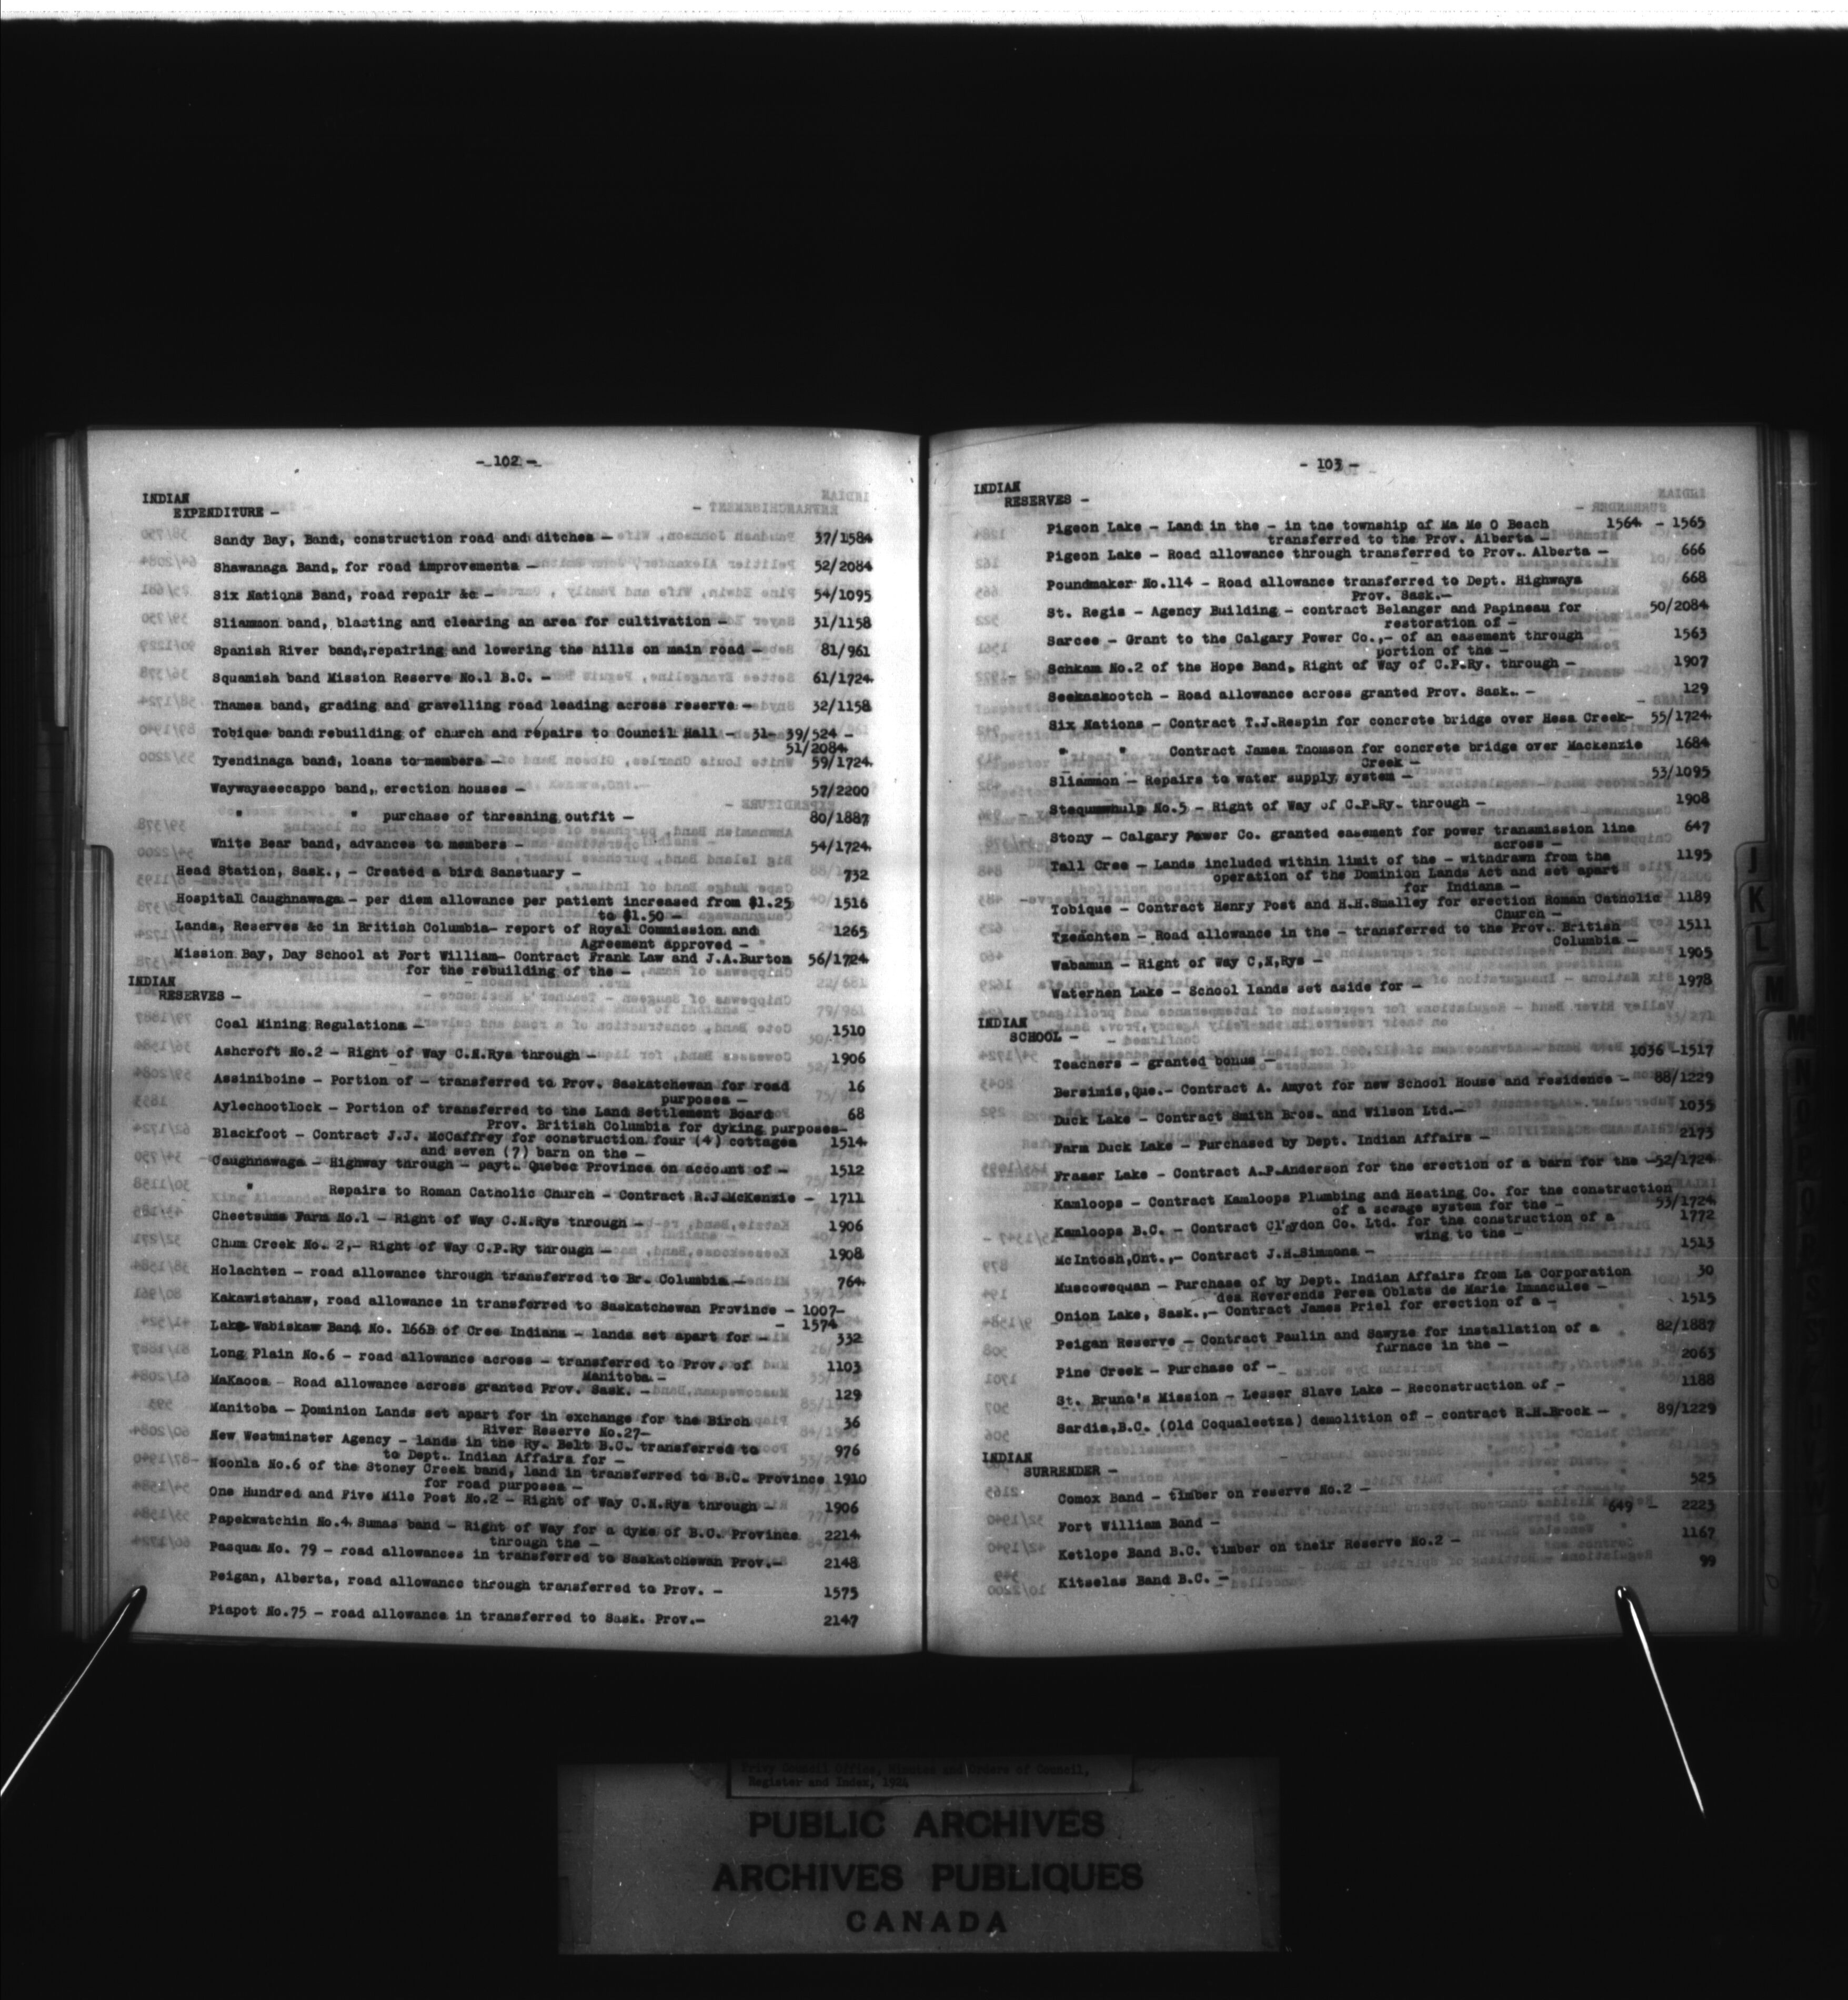 - 102 -
INDIAN
EXPENDITURE -
Sandy Bay, Band, construction road and ditches - 37/1584
Shawanaga Band, for road improvements - 52/2084
Six Nations Band, road repair &c - 54/1095
Sliammon band, blasting and clearing an area for cultivation - 31/1158
Spanish River band, repairing and lowering the hills on main road - 81/961
Squamish band Mission Reserve No.1 B.C. - 61/1724
Thames band, grading and gravelling road leading across reserve - 32/1158
Tobique band rebuilding of church and repairs to Council Hall - 31- 39/524 -
51/2084
Tyendinaga band, loans to members - 59/1724
Waywayseecappo band, erection houses - 57/2200
" " purchase of threshing outfit - 80/1887
White Bear band, advances to members - 54/1724
Head Station, Sask., - Created a bird Sanstuary - 732
Hospital Caughnawaga - per diem allowance per patient increased from $1.25 1516
to $1.50 -
Lands, Reserves &c in British Columbia- report of Royal Commission and 1265
Agreement approved -
Mission Bay, Day School at Fort William- Contract Frank Law and J.A.Burton 56/1724
for the rebuilding of the -
INDIAN
RESERVES -
Coal Mining Regulations - 1510
Ashcroft No.2 - Right of Way C.N.Rys through - 1906
Assiniboine - Portion of - transferred to Prov. Saskatchewan for road 16
purposes -
Aylechootlock - Portion of transferred to the Land Settlement Board 68
Prov. British Columbia for dyking purposes-
Blackfoot - Contract J.J. McCaffrey for construction four (4) cottages 1514
and seven (7) barn on the -
Caughnawaga - Highway through - payt. Quebec Province on account of - 1512
" Repairs to Roman Catholic Church - Contract R.J.McKenzie - 1711
Cheetsums Farm No.1 - Right of Way C.N.Rys through - 1906
Chum Creek No. 2,- Right of Way C.P.Ry through - 1908
Holachten - road allowance through transferred to Br. Columbia - 764
Kakawistahaw, road allowance in transferred to Saskatchewan Province - 1007-
- 1574
Lake Wabiskaw Band No. 166B of Cree Indians - lands set apart for - 332
Long Plain No.6 - road allowance across - transferred to Prov. of 1103
Manitoba -
MaKaoos - Road allowance across granted Prov. Sask. - 129
Manitoba - Dominion Lands set apart for in exchange for the Birch 36
River Reserve No.27-
New Westminster Agency - lands in the Ry. Belt B.C. transferred to 976
to Dept. Indian Affairs for -
Noonla No.6 of the Stoney Creek band, land in transferred to B.C. Province 1910
for road purposes -
One Hundred and Five Mile Post No.2 - Right of Way C.N.Rys through - 1906
Papekwatchin No.4 Sumas band - Right of Way for a dyke of B.C. Province 2214
through the -
Pasqua No. 79 - road allowances in transferred to Saskatchewan Prov.- 2148
Peigan, Alberta, road allowance through transferred to Prov. - 1575
Piapot No.75 - road allowance in transferred to Sask. Prov.- 2147
- 103 -
INDIAN
RESERVES -
Pigeon Lake - Land in the - in the township of Ma Me O Beach 1564 - 1565
transferred to the Prov. Alberta -
Pigeon Lake - Road allowance through transferred to Prov. Alberta - 666
Poundmaker No.114 - Road allowance transferred to Dept. Highways 668
Prov. Sask.-
St. Regis - Agency Building - contract Belanger and Papineau for 50/2084
restoration of -
Sarcee - Grant to the Calgary Power Co.,- of an easement through 1563
portion of the -
Schkam No.2 of the Hope Band, Right of Way of C.P.Ry. through - 1907
Seekaskootch - Road allowance across granted Prov. Sask. - 129
Six Nations - Contract T.J.Respin for concrete bridge over Hess Creek- 55/1724
" " Contract James Thomson for concrete bridge over Mackenzie 1684
Creek -
Sliammon - Repairs to water supply system - 53/1095
Stequmwhulp No.5 - Right of Way of C.P.Ry. through - 1908
Stony - Calgary Power Co. granted easement for power transmission line 647
across -
Tall Cree - Lands included within limit of the - withdrawn from the 1195
operation of the Dominion Lands Act and set apart
for Indians -
Tobique - Contract Henry Post and H.H.Smalley for erection Roman Catholic 1189
Church -
Tzeachten - Road allowance in the - transferred to the Prov. British 1511
Columbia -
Wabamun - Right of Way C,N,Rys - 1905
Waterhen Lake - School lands set aside for - 1978
INDIAN
SCHOOL -
Teachers - granted bonus - 1036 -1517
Bersimis,Que.- Contract A. Amyot for new School House and residence - 88/1229
Duck Lake - Contract Smith Bros. and Wilson Ltd.- 1035
Farm Duck Lake - Purchased by Dept. Indian Affairs - 2173
Fraser Lake - Contract A.P.Anderson for the erection of a barn for the -52/1724
Kamloops - Contract Kamloops Plumbing and Heating Co. for the construction
of a sewage system for the - 53/1724
Kamloops B.C. - Contract Claydon Co. Ltd. for the construction of a 1772
wing to the -
McIntosh,Ont.,- Contract J.H.Simmons - 1513
Muscowequan - Purchase of by Dept. Indian Affairs from La Corporation 30
des Reverends Peres Oblats de Marie Immaculee -
Onion Lake, Sask.,- Contract James Priel for erection of a - 1515
Peigan Reserve - Contract Paulin and Sawyze for installation of a 82/1887
furnace in the -
Pine Creek - Purchase of - 2063
St. Bruno's Mission - Lesser Slave Lake - Reconstruction of - 1188
Sardis,B.C. (Old Coqualeetza) demolition of - contract R.H.Brock - 89/1229
INDIAN
SURRENDER -
Comox Band - timber on reserve No.2 - 525
Fort William Band - 649 - 2223
Ketlope Band B.C. timber on their Reserve No.2 - 1167
Kitselas Band B.C. - 99
J
K
L
M
Privy Council Office, Minutes and Orders of Council,
Register and Index, 1924
PUBLIC ARCHIVES
ARCHIVES PUBLIQUES
CANADA